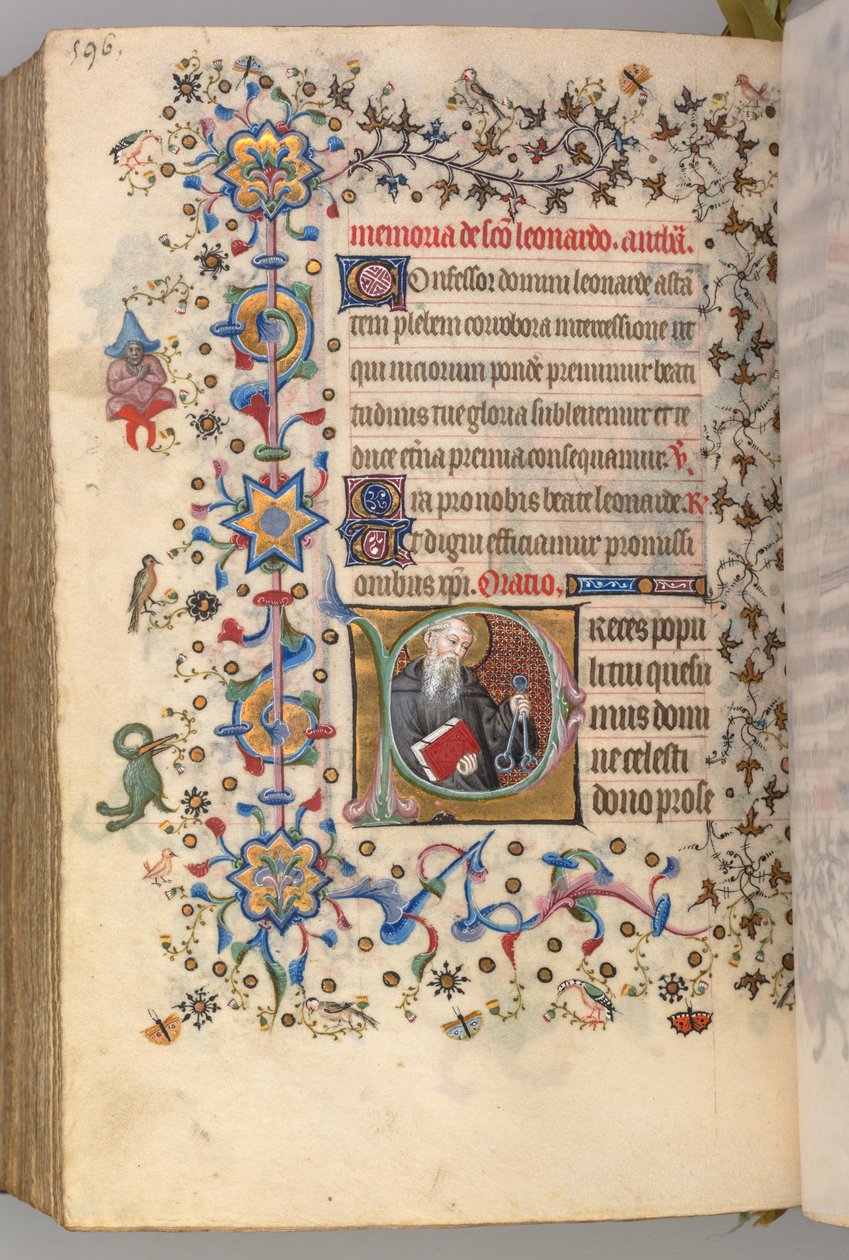 596.
memoria de sc̄o leonardo. anth̄a.
Confessor domini leonarde astā
tem plebem corrobora intercessione ut
qui uiciorum pond̄e premimur beati
tudinis tue gloria subleuemur et te
duce et̄na premia consequamur. V.
Ora pro nobis beate leonarde. R
Ut digni efficiamur promissi
onibus xp̄i. Oratio.
Preces popu
li tui quesu
mus domi
ne celesti
dono prose